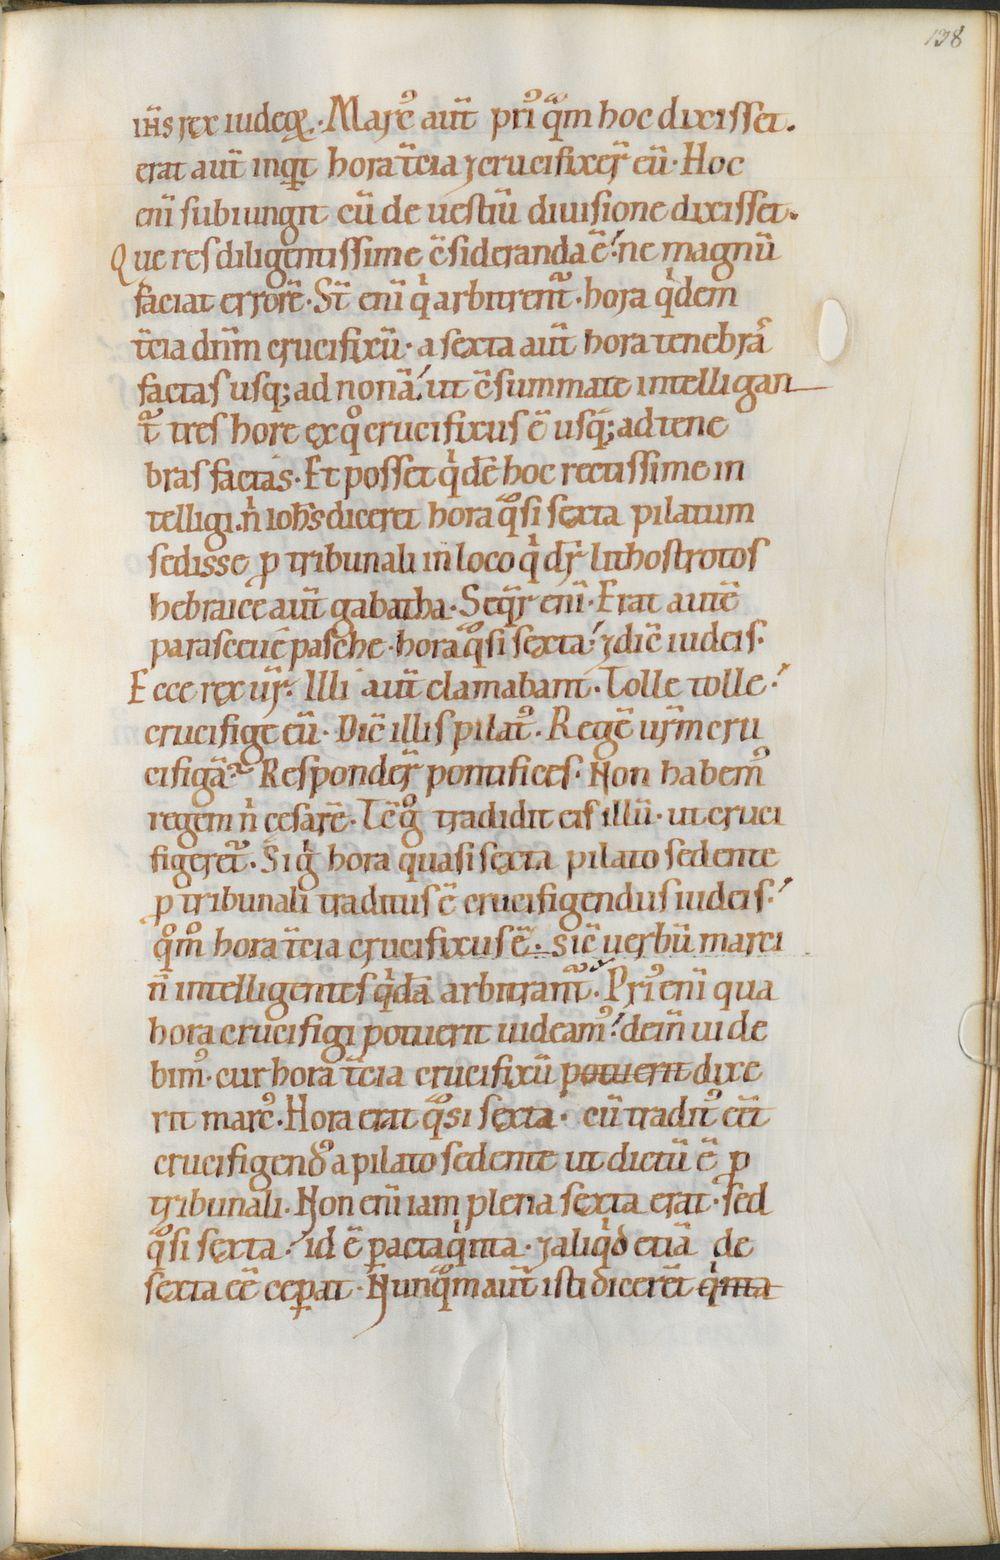 138
ih̅s rex iudeoꝝ. Marc᾽ aut̅ pri᾽ qͣm hoc dixisset.
erat aut̅ inqͥt hora t̅cia ⁊crucifixer̅ eu̅. Hoc
eni̅ subiungit cu̅ de uestiu̅ diuisione dixisset.
Que res diligentissime c̅sideranda e̅. ne magnu̅
faciat errore̅. St̅ eni̅ qͥ arbitrent᷑. hora qͥdem
t̅cia dn̅m crucifixu̅. a sexta aut̅ hora tenebra᷒
factas usq; ad nona̅. ut c̅summate intelligan
t᷑ tres hore ex qͦ crucifixus e̅ usq; ad tene
bras factas. Et posset qͥde̅ hoc rectissime in
telligi. nͥ ioh̅s diceret hora qͣsi sexta pilatum
sedisse ꝓ tribunali in loco qͥ dr̅ lithostrotos
hebraice aut̅ gabatha. Seqͥr̅ eni̅. Erat aute̅
parasceue̅ pasche. hora qͣsi sexta. ⁊dic̅ iudeis.
Ecce rex ur̅. Illi aut̅ clamabant. Tolle tolle.
crucifige eu̅. Dic̅ illis pilat᾽. Rege̅ ur̅m cru
cifiga̅. Responder̅ pontifices. Non habem᾽
regem nͥ cesare̅. Tc̅ gͦ tradidit eis illu̅. ut cruci
figeret᷑. Si gͥ hora quasi sexta pilato sedente
ꝓ tribunali traditus e̅ crucifigendus iudeis.
qͦmͦ hora t̅cia crucifixus e̅. sic̅ uerbu̅ marci
n̅ intelligentes qͥda̅ arbitrant᷑. Pri᾽ eni̅ qua
hora crucifigi potuerit uideam᾽. dein̅ uide
bim᾽. cur hora t̅cia crucifixu̅ potuerit dixe
rit marc᾽. Hora erat qͣsi sexta. cu̅ tradit᾽ e̅t
crucifigend᾽ a pilato sedente ut dictu̅ e̅ ꝓ
tribunali. Non eni̅ iam plena sexta erat. sed
qͣsi sexta. id e̅ pacta qͥnta. ⁊aliqͥd etia̅ de
sexta ee̅ ceꝑat. Nunqͣm aut̅ isti dicere̅t qͥnta